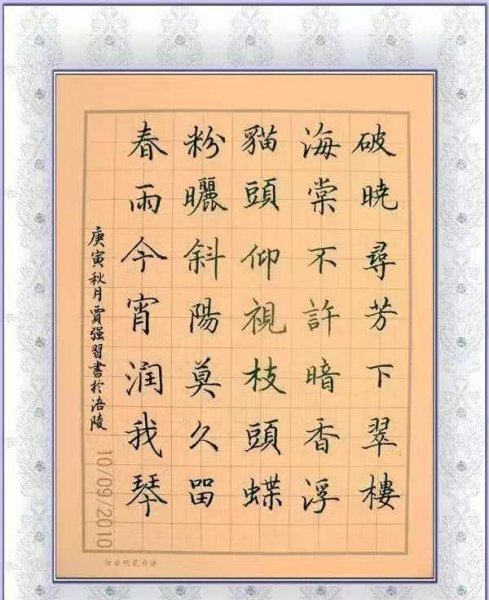 破曉尋芳下翠樓
海棠不許暗香浮
貓頭仰視枝頭蝶
粉曬斜陽莫久畱
春雨今宵润我琴
庚寅秋月賈强習書於涪陵
10/09/2010
仿古纸笔书法